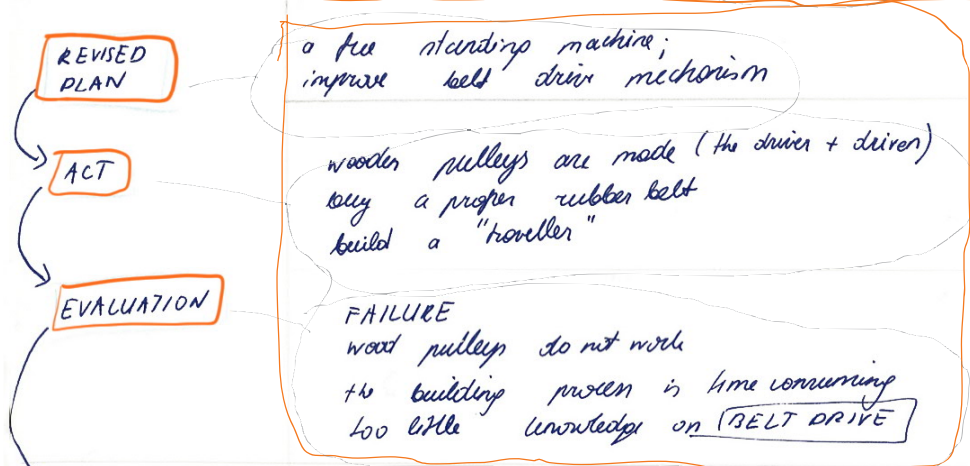 REVISED
PLAN
a free standing machine;
improve belt drive mechanism
ACT
wooden pulleys are made (the driver + driven)
buy a proper rubber belt
build a "traveller"
EVALUATION
FAILURE
wood pulleys do not work
the building process is time consuming
too little knowledge on BELT DRIVE